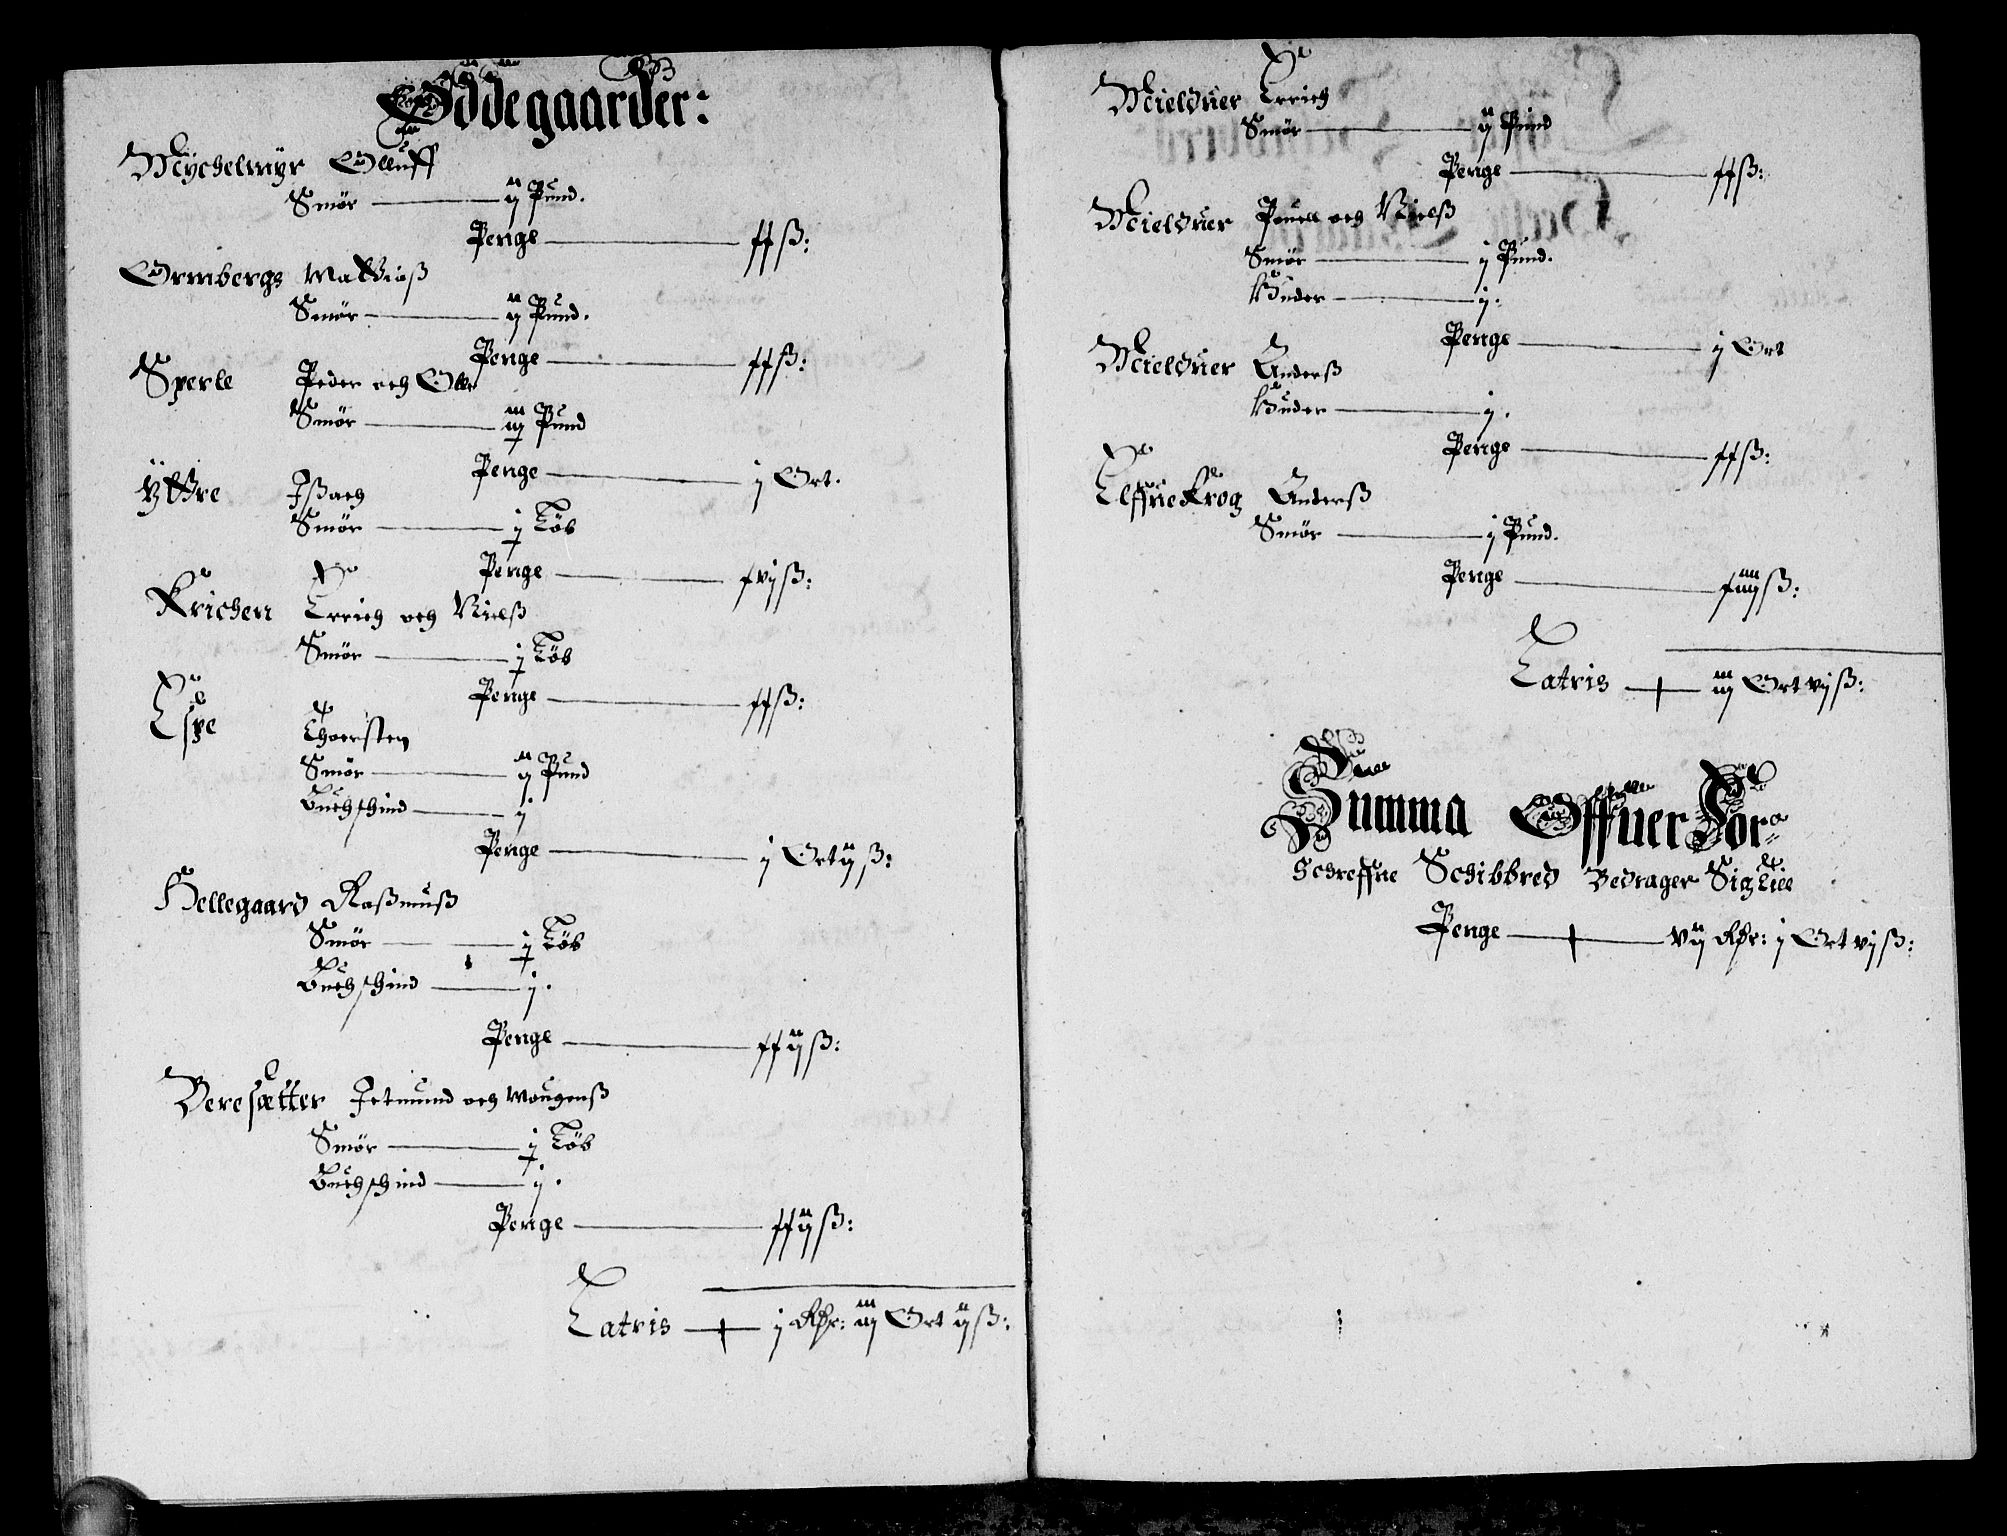 Øddegaarder:
Mÿchelmyr Olluff
Smør — ij Pund.
Penge — xx ß:
Ormbergs Mattiaß
Smør — ij Pund.
Penge — xx ß:
Sperle Peder och Olle
Smør — iij Pund
Penge — j Ort.
Ÿttre Jßach
Smør — j Løb
Penge — xvj ß:
Krichen Errich och Nielß
Smør — j Løb
Penge — xx ß:
Espe Thoersten
Smør — ij Pund
Buchschind — j
Penge — j Ort ij ß:
Hellegaard Raßmuß
Smør — j Løb
Buchschind — j.
Penge — xxij ß:
Beresætter Jetmund och Mougenß
Smør — j Løb
Buchschind — j.
Penge — xxij ß:
Latris — j Rdr: iij Ort ij ß:
Mielduer Errich
Smør — ij Pund
Penge — xx ß:
Mielduer Pouell och Nielß
Smør — j Pund.
Huder — j.
Penge — j Ort
Mielduer Anderß
Huder — j.
Penge — xx ß:
Elffuekrog Anderß
Smør — j Pund.
Penge — xiiij ß:
Latris — iij Ort vj ß:
Summa Offuer For:
Schreffne Schibbred Bedrager Sig Till
Penge — vij Rdr: j Ort vj ß: